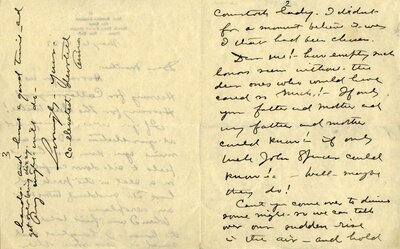 2
Comstock lady. I did not
for a moment believe it was
I that had been chosen.
Dear me! - how empty such
honors seem without the
dear ones who would have
cared so much! - If only
your father and mother and
my father and mother
could know! - if only
Uncle John Spencer could
know! - - Well maybe
they do!
Can't you come over to dinner
some night - so we can talk
over our sudden rise
in the air - and hold
3
hands and have a good time, as
get used to being dizzy
girls will do -
Lovingly yours
Co elected
Anna